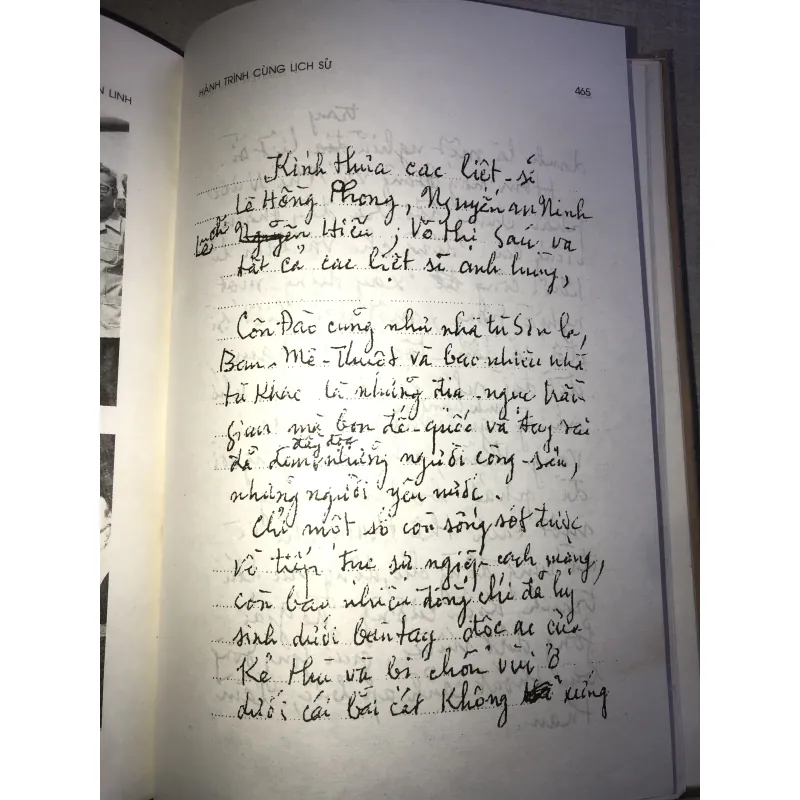 N LINH
HÀNH TRÌNH CÙNG LỊCH SỬ
465
Kính thưa các liệt-sĩ
Lê Hồng Phong, Nguyễn an Ninh
Nguyễn Hiếu, Võ Thị Sáu và
tất cả các liệt sĩ anh hùng,
Côn-Đảo cũng như nhà tù Sơn la,
Ban-Mê-Thuột và bao nhiêu nhà
tù khác là những địa-ngục trần
gian mà bọn đế-quốc và tay sai
đầy đọa
đã đem những người cộng-sản,
những người yêu nước.
Chỉ một số còn sống sót được
về tiếp tục sự nghiệp cách mạng,
còn bao nhiêu đồng chí đã hy
sinh dưới bàn tay độc ác của
Kẻ thù và bị chôn vùi ở
dưới cái bãi cát không xứng